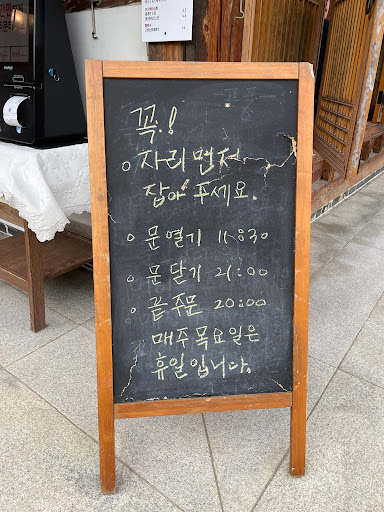 꼭.!
o 자리 먼저
잡아 주세요.
o 문열기 11:30
o 문닫기 21:00
o 끝주문 20:00
매주 목요일은
휴일입니다.